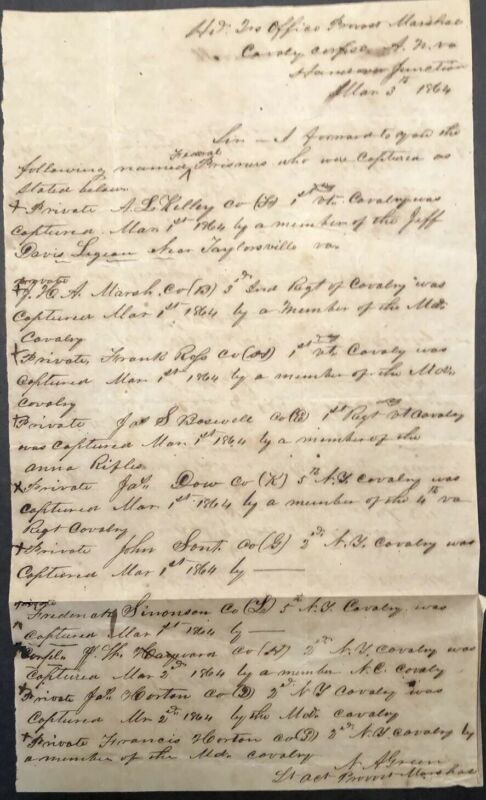 Hd. Qrs Office Provost Marshal
Cavalry corpse A. N. va
Hanover Junction
Mar 3th 1864
Sir – I forward to you the
following named Federal Prisners who were captured as
stated below
+ Private A. L. Kelley Co (H) 1st vt. Cavalry was
captured Mar 1st 1864 by a member of the Jeff
Davis Legion Near Taylorsville va.
private
J. H. A. Marsh. Co (D) Ind Regt of Cavalry was
captured Mar 1st 1864 by a member of the Md.
Cavalry
+ Private, Frank Ross Co (H) 1st vt. Cavaly was
captured Mar 1st 1864 by a member of the Md.
cavalry
+ Private Jas S Boswell Co (B) 1st Regt vt Cavalry
was captured Mar 1st 1864 by a member of the
anna Rifles
+ Private Jas. Dow Co (K) 5th N.Y. Cavalry was
captured Mar 1st 1864 by a member of the 4th va
Regt Cavalry
+ Private John Co (G) 2nd N.Y. Cavalry was
captured Mar 1st 1864 by ——
private
Frederick Simonson Co (L) 5th N.Y Cavalry was
captured Mar 1st 1864 by ——
Corpl. J. W. Hayward Co (H) 2nd N.Y. Cavalry was
captured Mar 2nd 1864 by a member N.C. cavaly
+ Private Jas Horton Co (D) 2nd N Y Cavalry was
captured Mr 2nd 1864 by the Md. cavalry
+ Private Francis Horton Co (D) 2nd N.Y Cavalry by
a member of the Md. cavalry
N. A Green
Lt act Provost Marshal